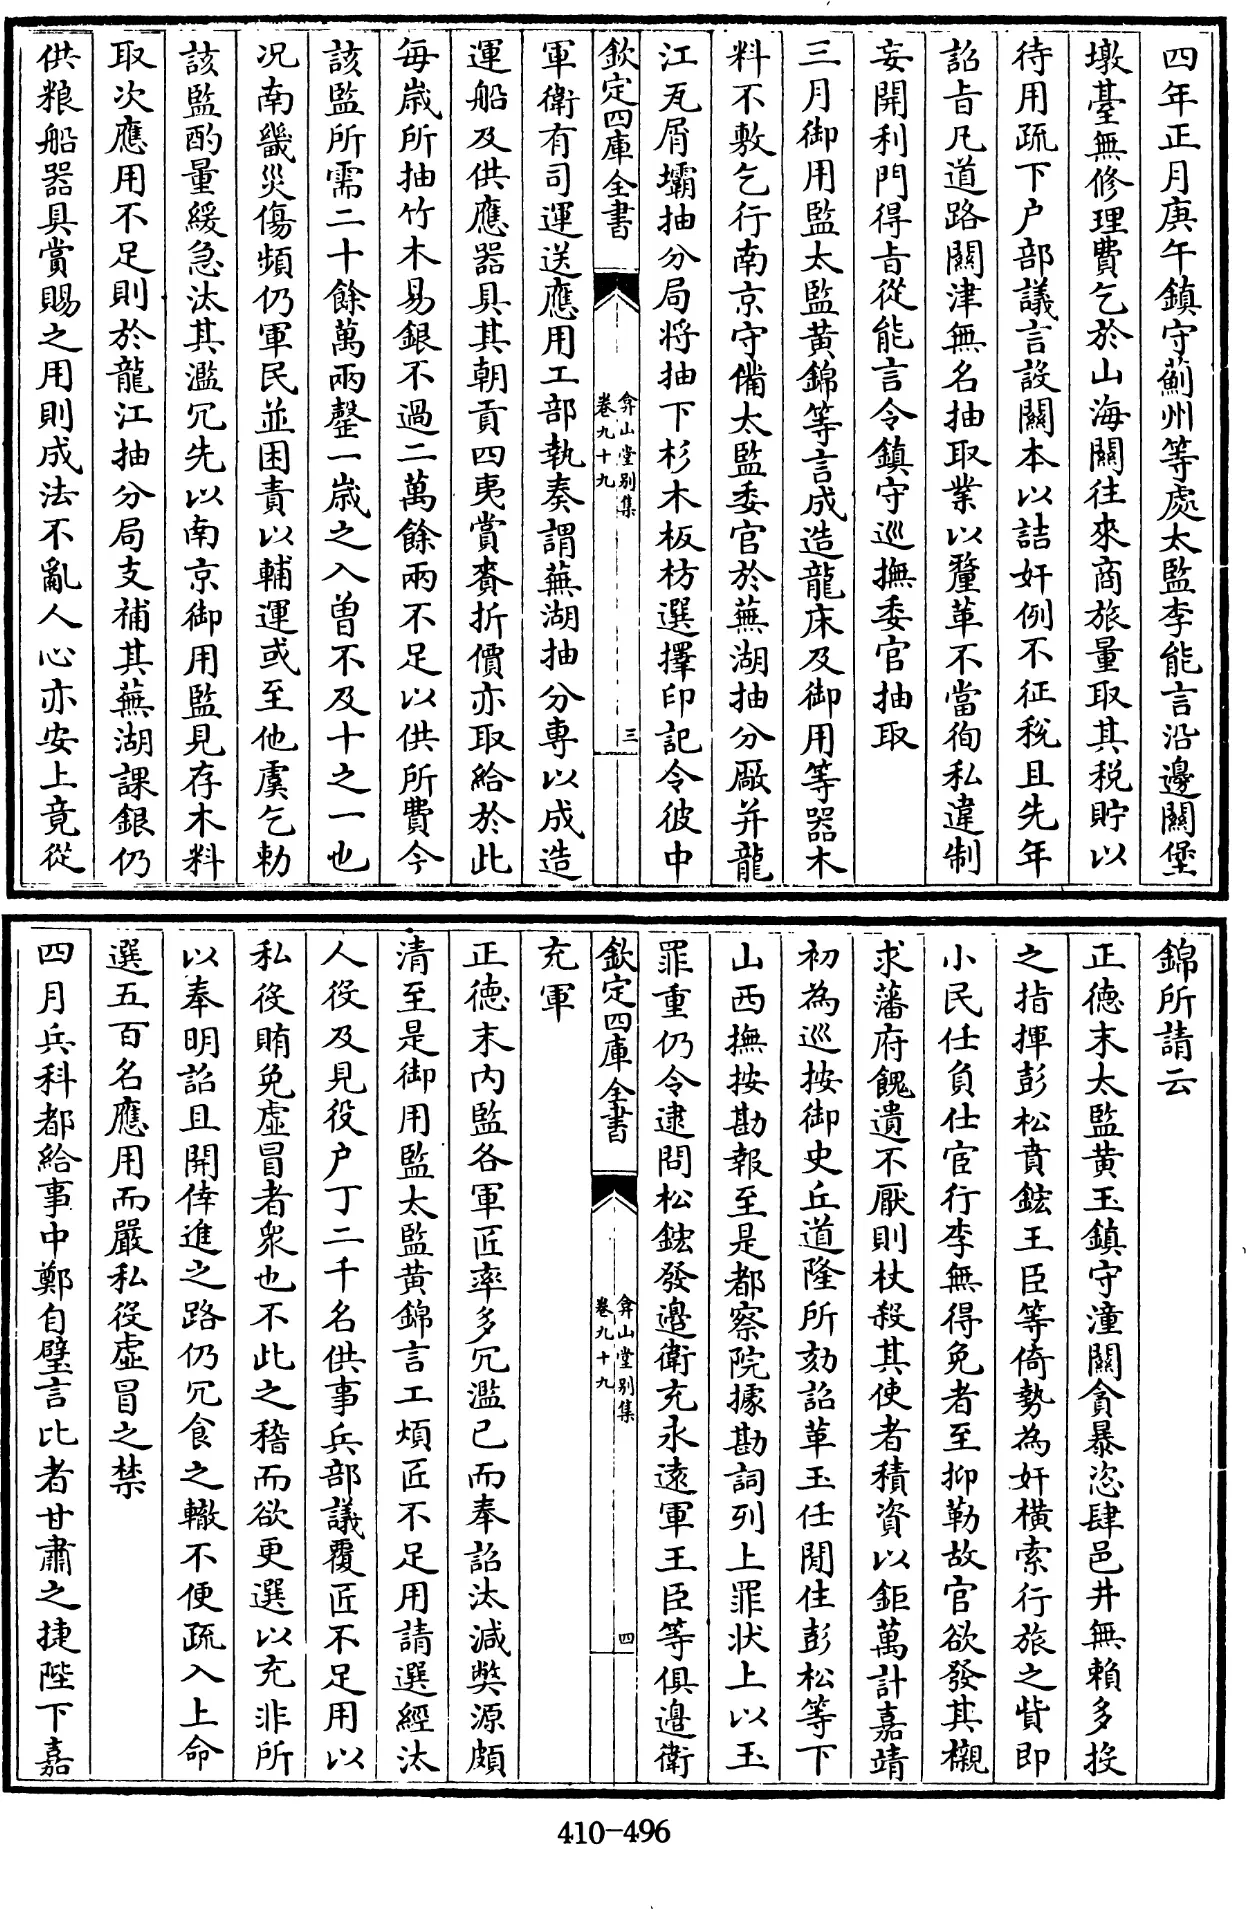 四年正月庚午鎮守薊州等處太監李能言沿邊關堡
墩臺無修理費乞於山海關往來商旅量取其稅貯以
待用疏下户部議言設關本以詰奸例不征稅且先年
詔㫖凡道路關津無名抽取業以釐革不當徇私違制
妄開利門得㫖從能言令鎮守巡撫委官抽取
三月御用監太監黄錦等言成造龍床及御用等器木
料不敷乞行南京守備太監委官於蕪湖抽分厰并龍
江瓦屑壩抽分局将抽下杉木板枋選擇印記令彼中
欽定四庫全書
弇山堂别集
卷九十九
三
軍衛有司運送應用工部執奏謂蕪湖抽分專以成造
運船及供應器具其朝貢四夷賞賚折價亦取給於此
每歲所抽竹木易銀不過二萬餘兩不足以供所費今
該監所需二十餘萬兩罄一歲之入曾不及十之一也
况南畿災傷頻仍軍民並困責以輔運或至他虞乞勅
該監酌量緩急汰其濫冗先以南京御用監見存木料
取次應用不足則於龍江抽分局支補其蕪湖課銀仍
供粮船器具賞賜之用則成法不亂人心亦安上竟從
錦所請云
正德末太監黄玉鎮守潼關貪暴恣肆邑井無賴多投
之指揮彭松賁鋐王臣等倚勢為奸橫索行旅之貲即
小民任負仕宦行李無得免者至抑勒故官欲發其櫬
求藩府餽遺不厭則杖殺其使者積資以鉅萬計嘉靖
初為巡按御史丘道隆所劾詔革玉任閒住彭松等下
山西撫按勘報至是都察院據勘詞列上罪狀上以玉
罪重仍令逮問松鋐發邊衛充永遠軍王臣等俱邊衛
欽定四庫全書
弇山堂别集
卷九十九
四
充軍
正德末内監各軍匠率多冗濫已而奉詔汰減獘源頗
清至是御用監太監黄錦言工煩匠不足用請選經汰
人役及見役户丁二千名供事兵部議覆匠不足用以
私役賄免虛冒者衆也不此之稽而欲更選以充非所
以奉明詔且開倖進之路仍冗食之轍不便疏入上命
選五百名應用而嚴私役虛冒之禁
四月兵科都給事中鄭自璧言比者甘肅之捷陛下嘉
410-496